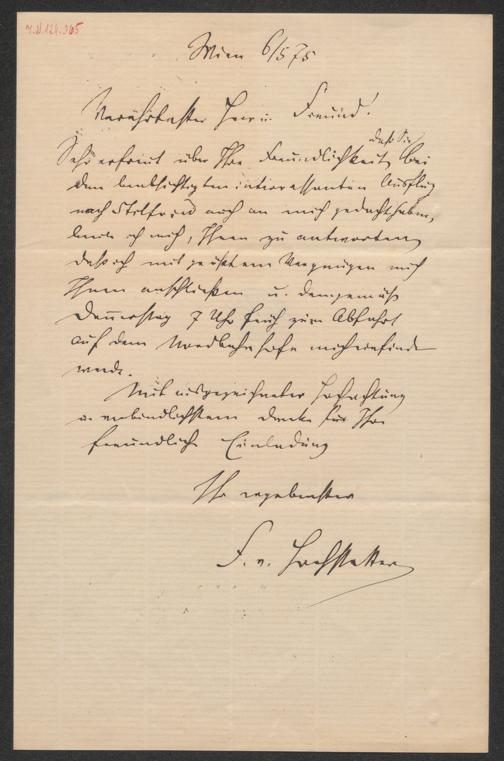 I.N. 124.065
Wien 6/5 75
Verehrtester Herr u. Freund!
Sehr erfreut über Ihre Freundlichkeit, daß Sie bei
dem beabsichtigten interessanten Ausflug
nach Stillfried auch an mich gedacht haben,
beeile ich mich, Ihnen zu antworten,
daß ich mit größtem Vergnügen mich
Ihnen anschließen u. demgemäß
Donnerstag 7 Uhr früh zur Abfahrt
auf dem Nordbahnhofe mich einfinden
werde.
Mit ausgezeichneter Hochachtung
u. verbindlichstem Danke für Ihre
freundliche Einladung
Ihr ergebenster
F. v. Hochstetter